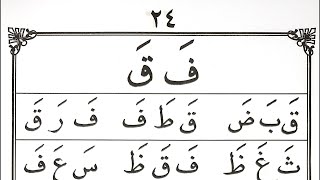 ٢٤
فَ قَ
قَ بَ ضَ قَ طَ فَ فَ رَ قَ
ثَ غَ ظَ فَ قَ ظَ سَ عَ فَ